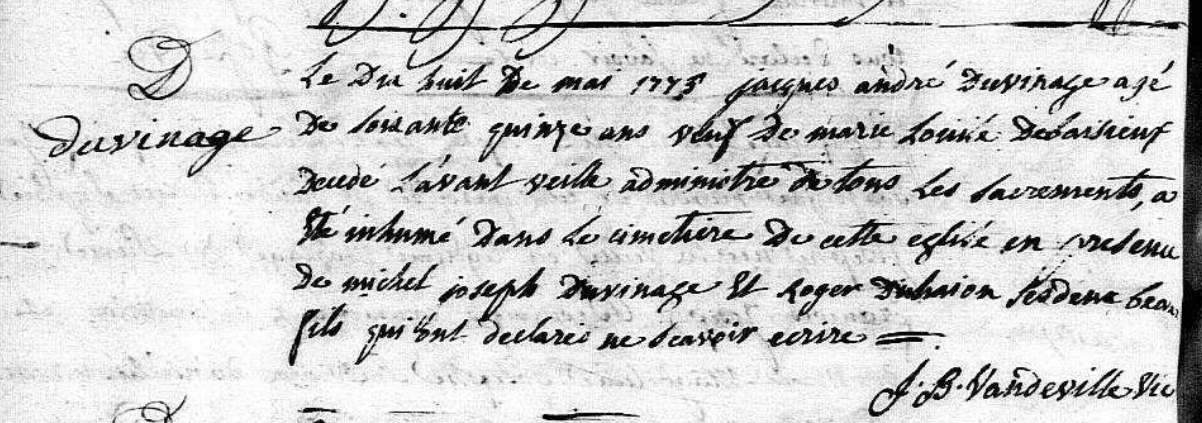 D
duvinage
Le Dix huit De mai 1775 jacques andré Duvinage agé
De soixante quinze ans veuf De marie Louise Debaisieux
Decedé L'avant veille administré de tous Les sacrements, a
Eté inhumé Dans Le cimetière De cette eglise en presence
De michel joseph Duvinage Et Roger Duhaion ses deux beau
fils qui ont declaré ne scavoir ecrire
J. B. Vandeville Vic